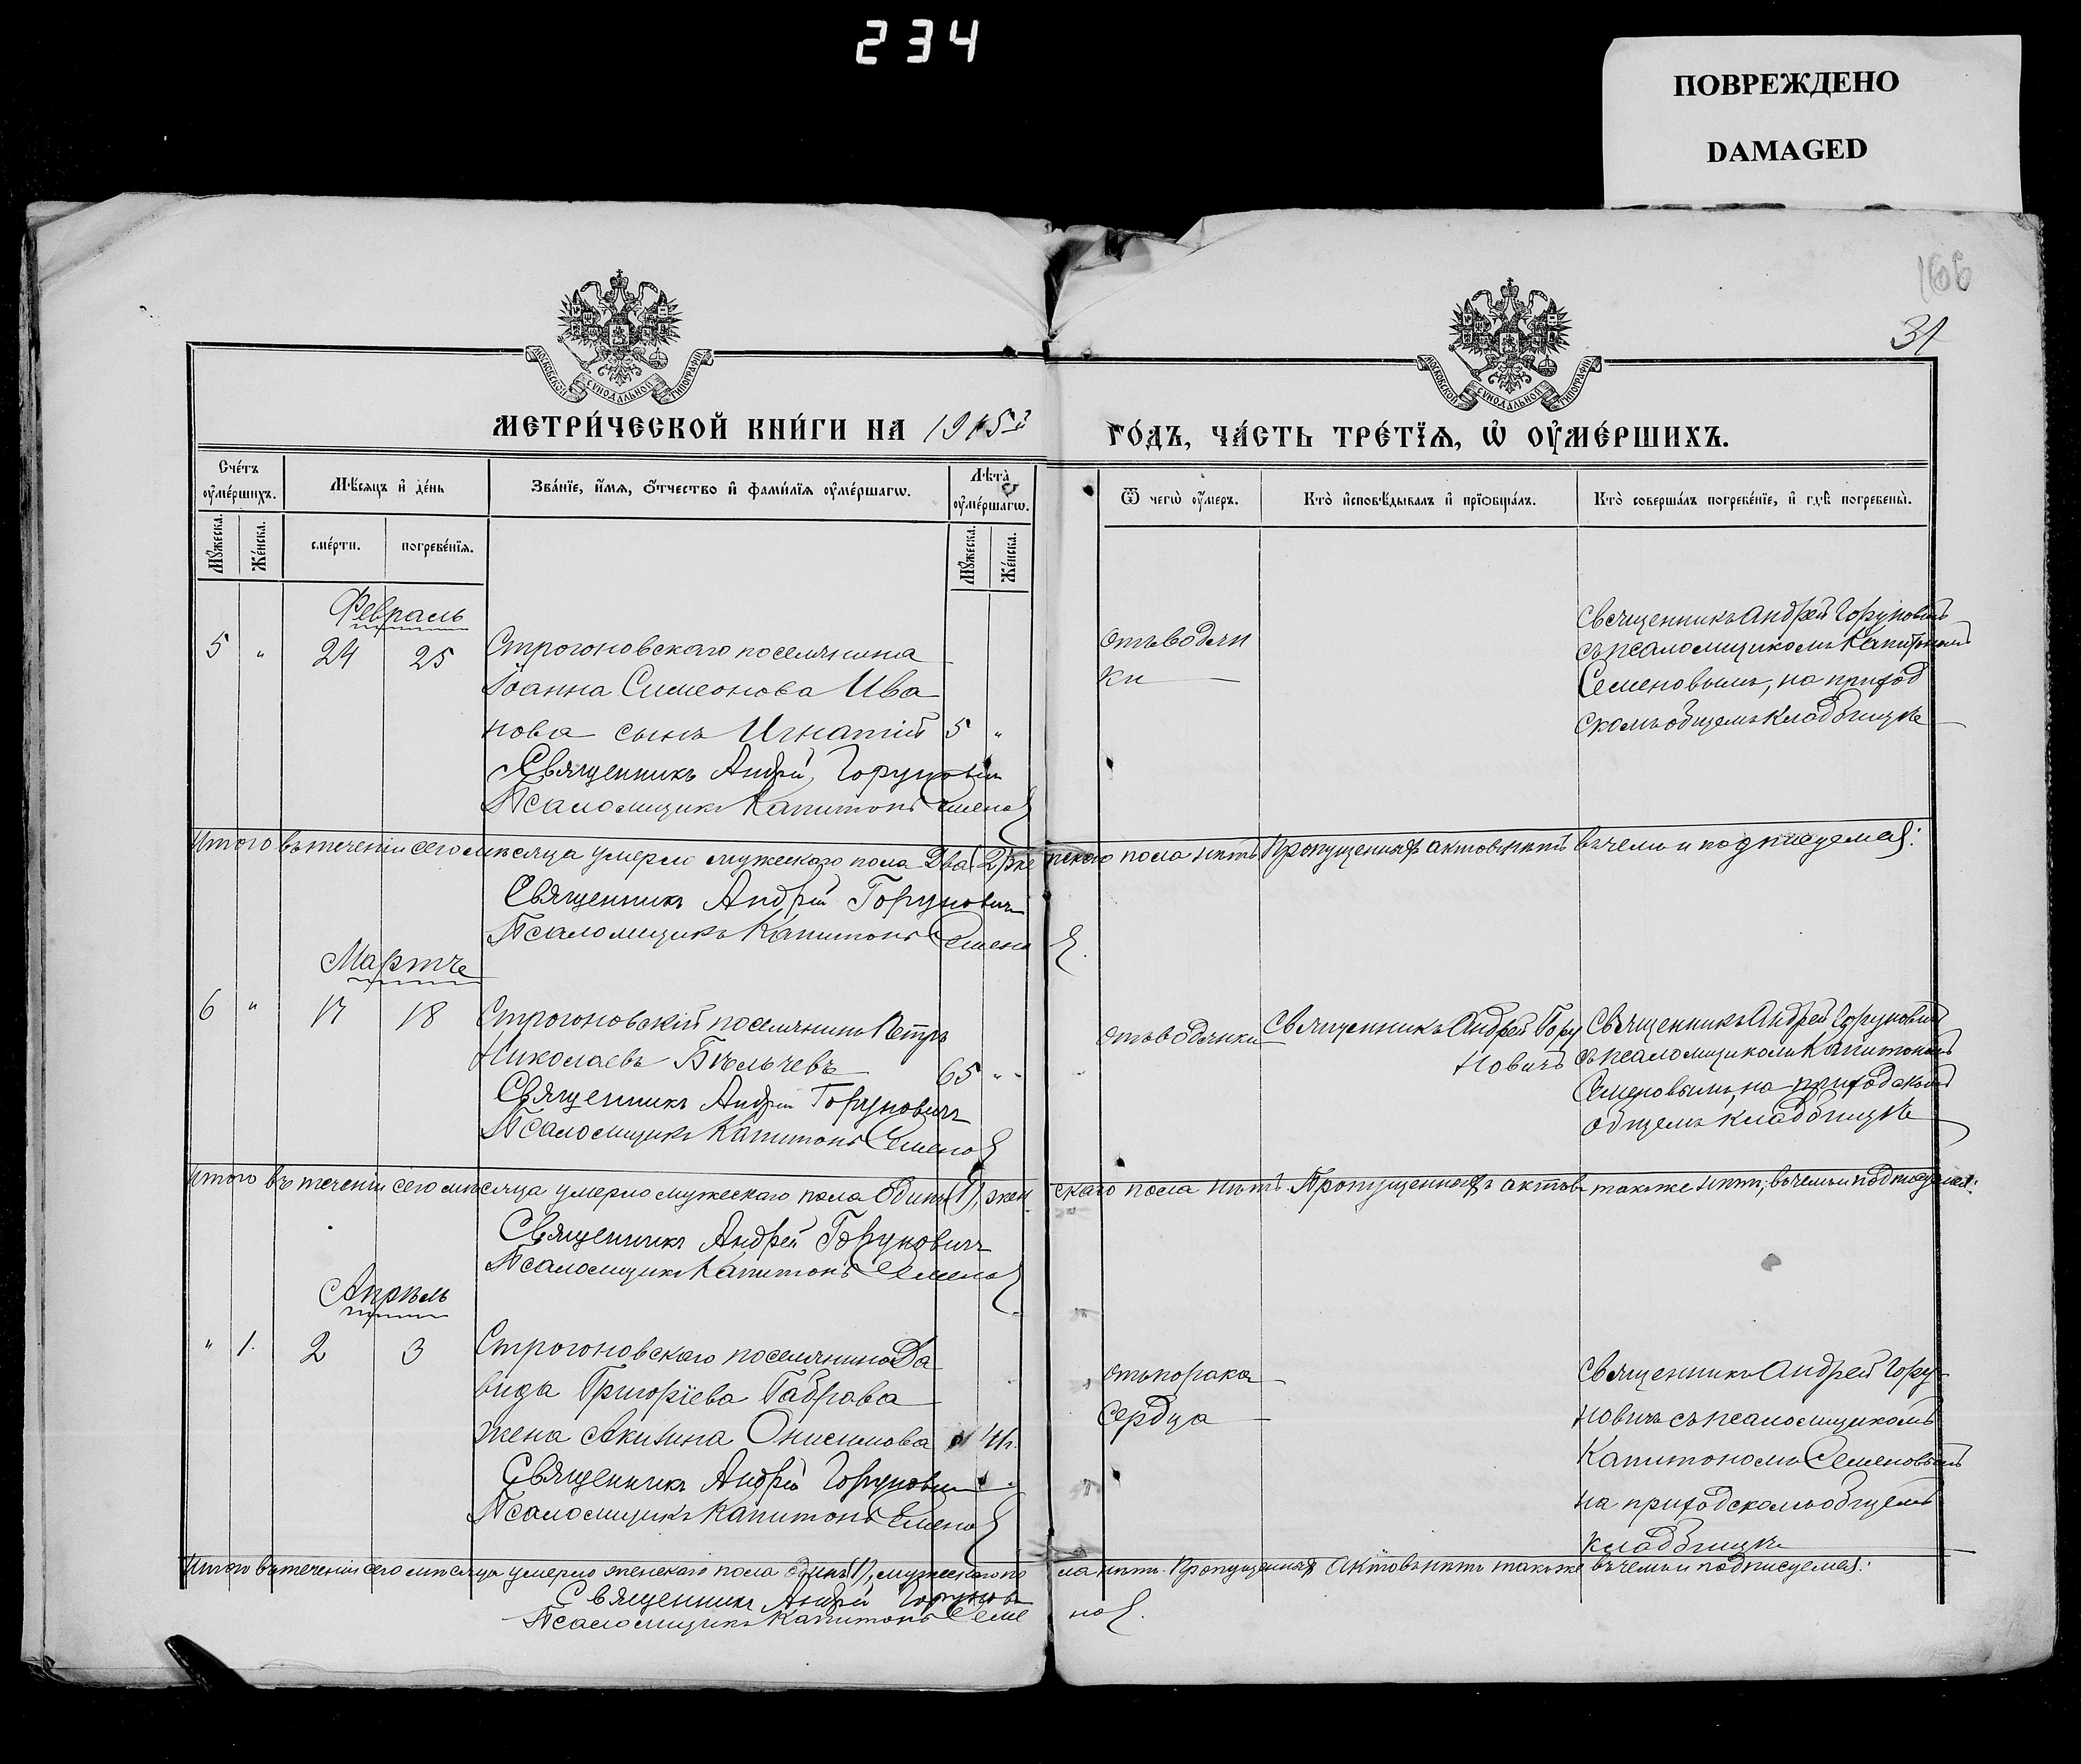 234
ПОВРЕЖДЕНО
DAMAGED
166
31
МОСКОВСКОЙ СѴНОДАЛЬНОЙ ТИПОГРАФІИ
МОСКОВСКОЙ СѴНОДАЛЬНОЙ ТИПОГРАФІИ
МЕТРИ́ЧЕСКОЙ КНИ́ГИ НА 1915й
ГО́ДЪ, ЧА́СТЬ ТРЕ́ТЇѦ, Ѡ҆ ОУ҆МЕ́РШИХЪ.
Сче́тъ оу҆ме́ршихъ.
Мѣ́сяцъ и҆ де́нь
Зва́нїе, и҆́мѧ, ѻ҆́тчество и҆ фами́лїѧ оу҆ме́ршагѡ.
Лѣта̀ оу҆ме́ршагѡ.
Ѿ чегѡ̀ оу҆́меръ.
Кто̀ и҆сповѣ́дывалъ и҆ прїѡбща́лъ.
Кто̀ соверша́лъ погребе́нїе, и҆ гдѣ̀ погребены̀.
Мꙋ́жеска.
Же́нска.
сме́рти.
погребе́нїѧ.
Мꙋ́жеска.
Же́нска.
Февраль
5 " 24 25 Строгоновскаго поселянина
Іоанна Симеонова Ива
нова сынъ Игнатій 5 "
Священникъ Андрей Горуновичъ
Псаломщикъ Капитонъ Семеновъ
отъ водян
ки
Священникъ Андрей Горуновичъ
съ псаломщикомъ Капитономъ
Семеновымъ, на приход
скомъ общемъ кладбищѣ
Итого въ теченіи сего мѣсяца умерло мужескаго пола два (2), же нскаго пола нѣтъ. Пропущенныхъ актовъ нѣтъ въ чемъ и подписуемся:
Священникъ Андрей Горуновичъ
Псаломщикъ Капитонъ Семеновъ.
Мартъ
6 " 17 18 Строгоновскій поселянинъ Петръ
Николаевъ Бѣльчевъ 65 "
Священникъ Андрей Горуновичъ
Псаломщикъ Капитонъ Семеновъ
отъ водянки
Священникъ Андрей Гору
новичъ
Священникъ Андрей Горуновичъ
съ псаломщикомъ Капитономъ
Семеновымъ, на приходскомъ
общемъ кладбищѣ
Итого въ теченіи сего мѣсяца умерло мужескаго пола одинъ (1), жен скаго пола нѣтъ. Пропущенныхъ актовъ также нѣтъ, въ чемъ и подписуемся:
Священникъ Андрей Горуновичъ
Псаломщикъ Капитонъ Семеновъ.
Апрѣль
" 1. 2 3 Строгоновскаго поселянина Да
вида Григоріева
жена Акилина Онисимова
Священникъ Андрей Горуновичъ
Псаломщикъ Капитонъ Семеновъ
отъ порака
сердца
Священникъ Андрей Гору
новичъ съ псаломщикомъ
Капитономъ Семеновымъ
на приходскомъ общемъ
кладбищѣ
Итого въ теченіи сего мѣсяца умерло женскаго пола одинъ (1), мужескаго по ла нѣтъ. Пропущенныхъ актовъ нѣтъ также въ чемъ и подписуемся:
Священникъ Андрей Горуновичъ
Псаломщикъ Капитонъ Семе новъ.